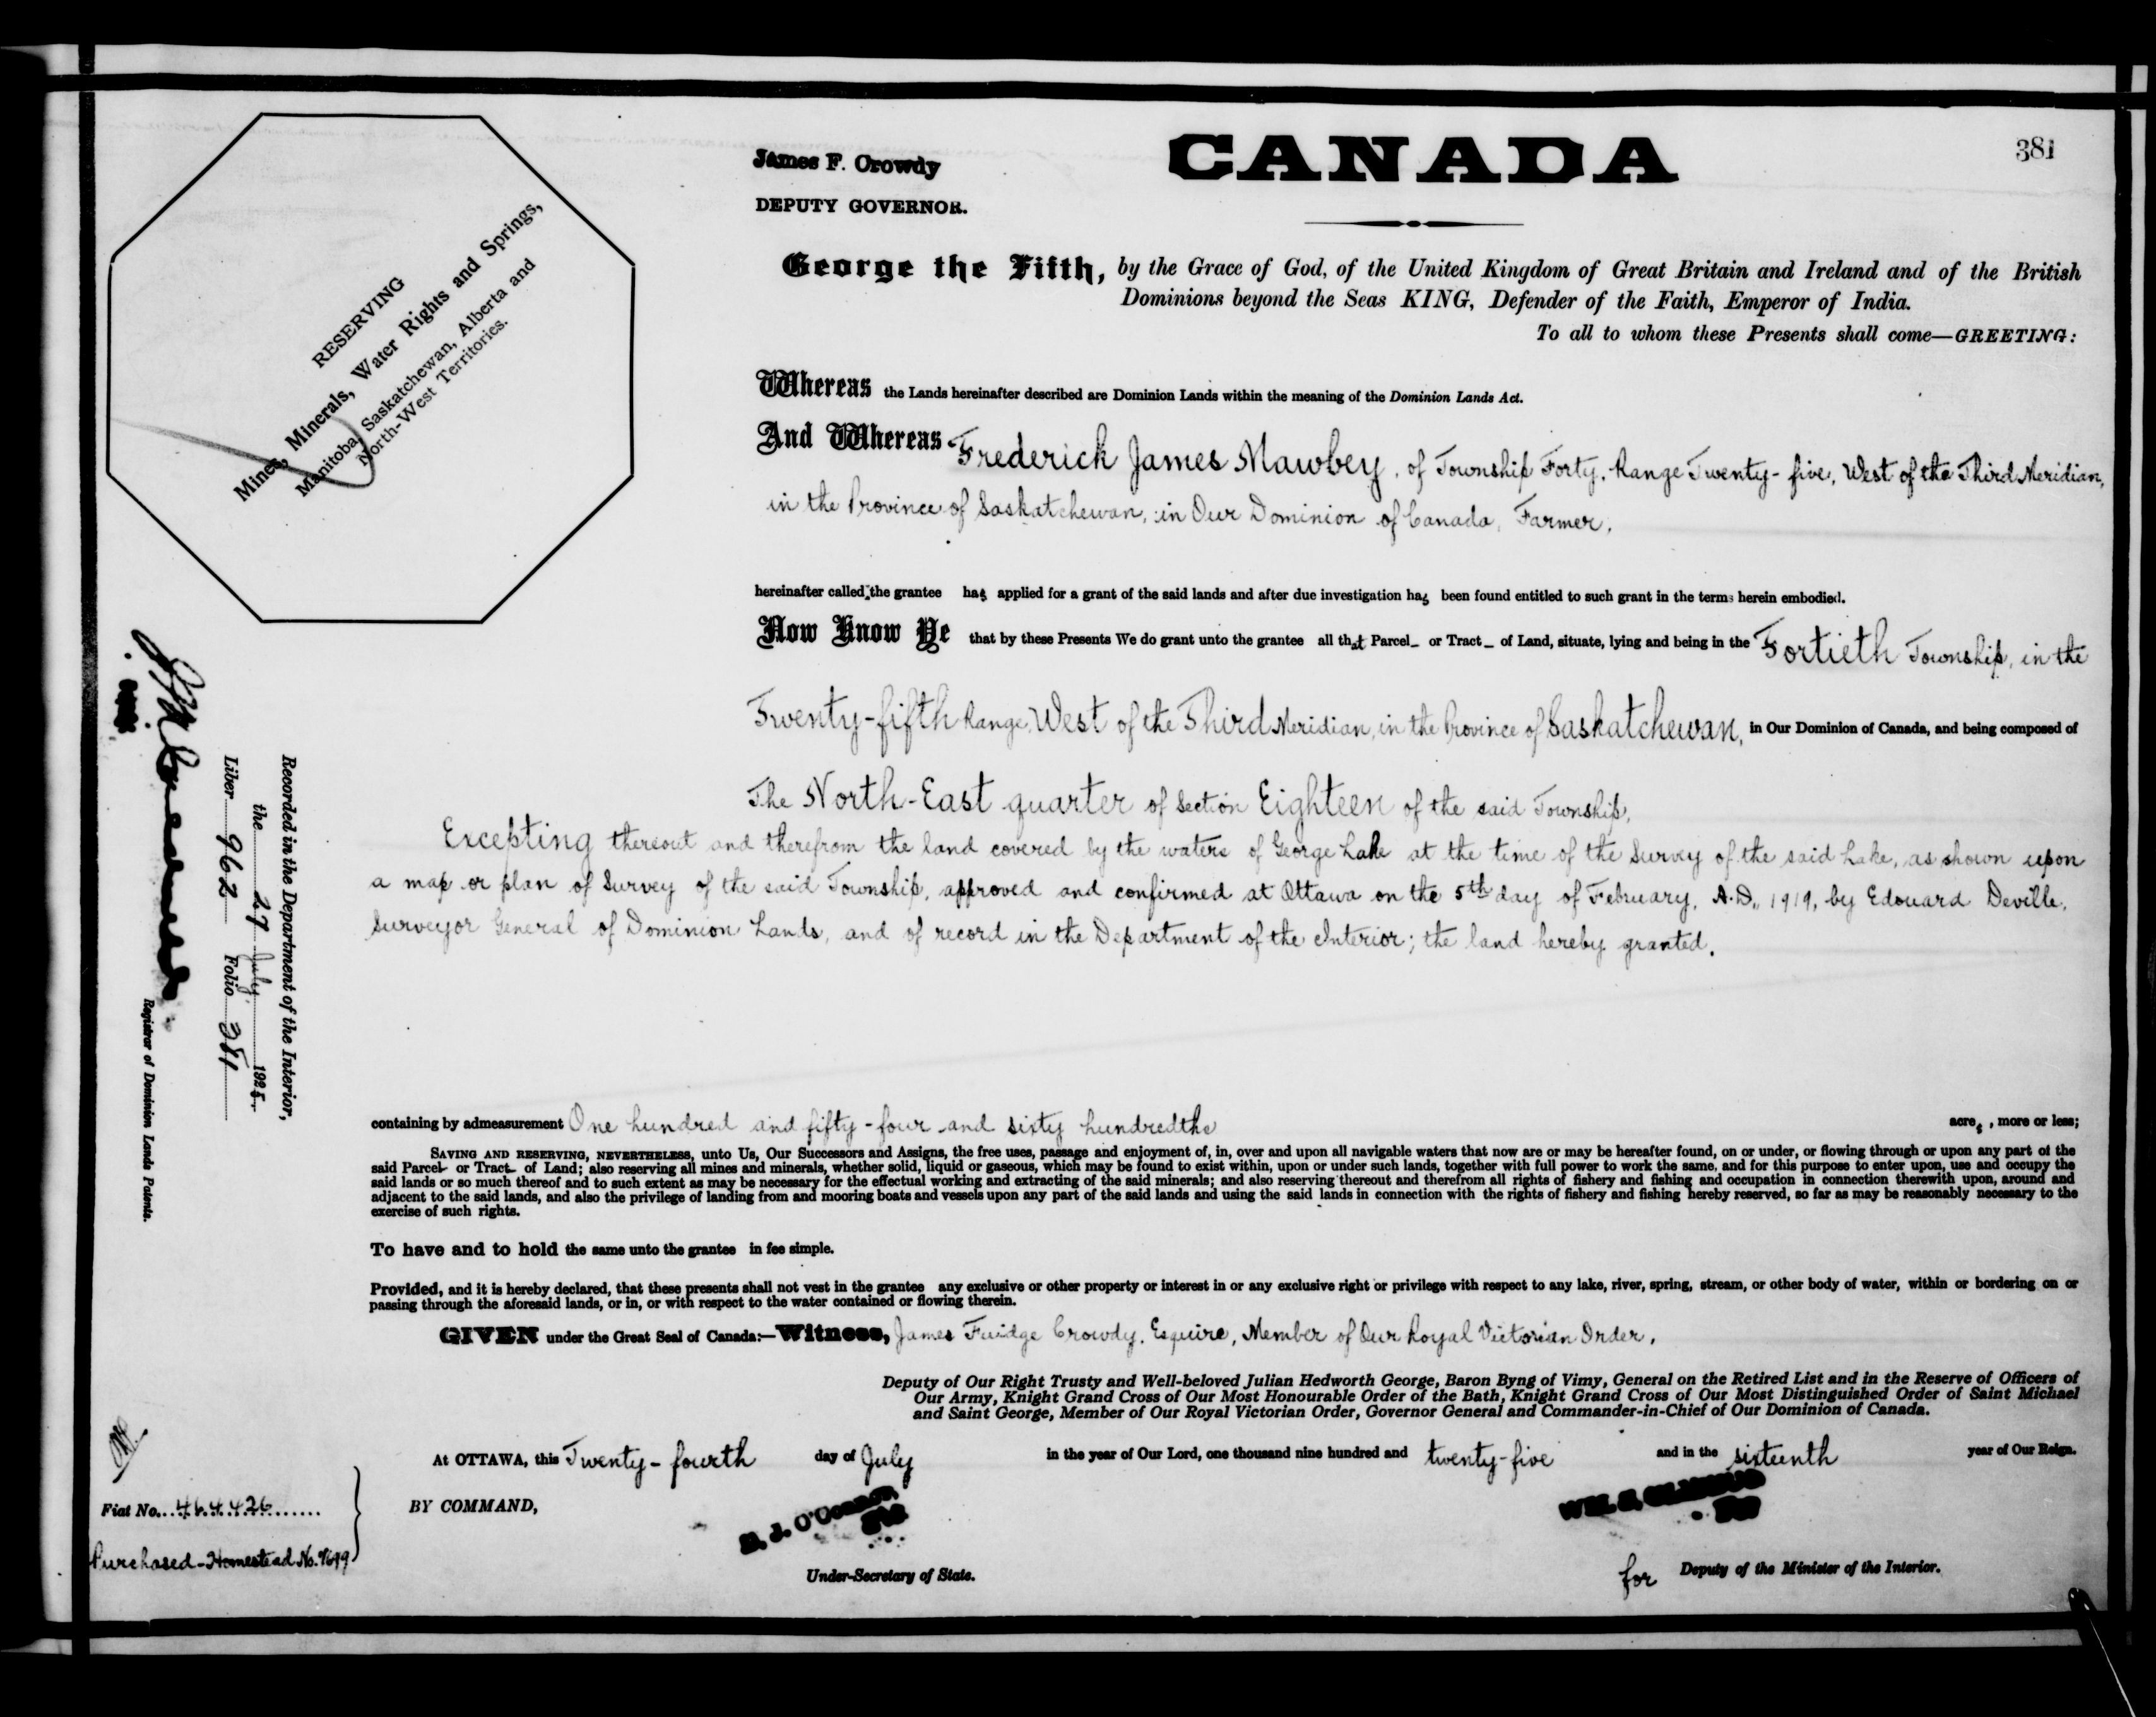 381
CANADA
James F. Crowdy
DEPUTY GOVERNOR.
RESERVING
Mines, Minerals, Water Rights and Springs,
Manitoba, Saskatchewan, Alberta and
North-West Territories.
George the Fifth, by the Grace of God, of the United Kingdom of Great Britain and Ireland and of the British
Dominions beyond the Seas KING, Defender of the Faith, Emperor of India.
To all to whom these Presents shall come—GREETING:
Whereas the Lands hereinafter described are Dominion Lands within the meaning of the Dominion Lands Act.
And Whereas Frederick James Mawbey, of Township Forty, Range Twenty-five, West of the Third Meridian,
in the Province of Saskatchewan, in Our Dominion of Canada, Farmer,
hereinafter called the grantee has applied for a grant of the said lands and after due investigation has been found entitled to such grant in the terms herein embodied.
Now Know Ye that by these Presents We do grant unto the grantee all that Parcel or Tract of Land, situate, lying and being in the Fortieth Township, in the
Twenty-fifth Range, West of the Third Meridian, in the Province of Saskatchewan, in Our Dominion of Canada, and being composed of
The North-East quarter of Section Eighteen of the said Township,
Excepting thereout and therefrom the land covered by the waters of George Lake at the time of the Survey of the said Lake, as shown upon
a map or plan of Survey of the said Township, approved and confirmed at Ottawa on the 5th day of February, A.D., 1919, by Edouard Deville,
Surveyor General of Dominion Lands, and of record in the Department of the Interior; the land hereby granted.
containing by admeasurement One hundred and fifty-four and sixty hundredths acres, more or less;
SAVING AND RESERVING, NEVERTHELESS, unto Us, Our Successors and Assigns, the free uses, passage and enjoyment of, in, over and upon all navigable waters that now are or may be hereafter found, on or under, or flowing through or upon any part of the
said Parcel or Tract of Land; also reserving all mines and minerals, whether solid, liquid or gaseous, which may be found to exist within, upon or under such lands, together with full power to work the same, and for this purpose to enter upon, use and occupy the
said lands or so much thereof and to such extent as may be necessary for the effectual working and extracting of the said minerals; and also reserving thereout and therefrom all rights of fishery and fishing and occupation in connection therewith upon, around and
adjacent to the said lands, and also the privilege of landing from and mooring boats and vessels upon any part of the said lands and using the said lands in connection with the rights of fishery and fishing hereby reserved, so far as may be reasonably necessary to the
exercise of such rights.
To have and to hold the same unto the grantee in fee simple.
Provided, and it is hereby declared, that these presents shall not vest in the grantee any exclusive or other property or interest in or any exclusive right or privilege with respect to any lake, river, spring, stream, or other body of water, within or bordering on or
passing through the aforesaid lands, or in, or with respect to the water contained or flowing therein.
GIVEN under the Great Seal of Canada:—Witness, James Fuidge Crowdy, Esquire, Member of Our Royal Victorian Order,
Deputy of Our Right Trusty and Well-beloved Julian Hedworth George, Baron Byng of Vimy, General on the Retired List and in the Reserve of Officers of
Our Army, Knight Grand Cross of Our Most Honourable Order of the Bath, Knight Grand Cross of Our Most Distinguished Order of Saint Michael
and Saint George, Member of Our Royal Victorian Order, Governor General and Commander-in-Chief of Our Dominion of Canada.
At OTTAWA, this Twenty-fourth day of July in the year of Our Lord, one thousand nine hundred and twenty-five and in the sixteenth year of Our Reign.
BY COMMAND,
J. O'Connor
Under-Secretary of State.
for Deputy of the Minister of the Interior.
Recorded in the Department of the Interior,
the 27 July 1925.
Liber 962 Folio 381
Registrar of Dominion Lands Patents.
Fiat No. 464426
Purchased-Homestead No. 9699